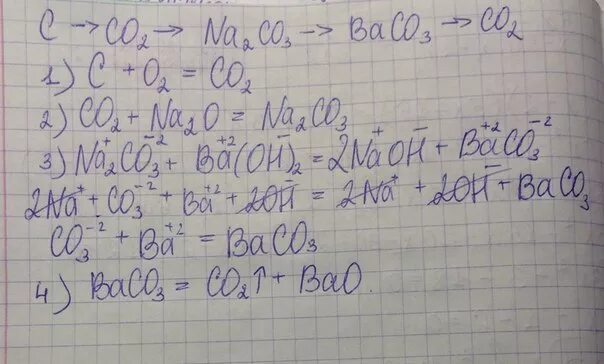 C → CO₂ → Na₂CO₃ → BaCO₃ → CO₂
1) C + O₂ = CO₂
2) CO₂ + Na₂O = Na₂CO₃
3) Na₂⁺CO₃⁻² + Ba⁺²(OH⁻)₂ = 2Na⁺OH⁻ + Ba⁺²CO₃⁻²
2Na⁺ + CO₃⁻² + Ba⁺² + 2OH⁻ = 2Na⁺ + 2OH⁻ + BaCO₃
CO₃⁻² + Ba⁺² = BaCO₃
4) BaCO₃ = CO₂↑ + BaO.